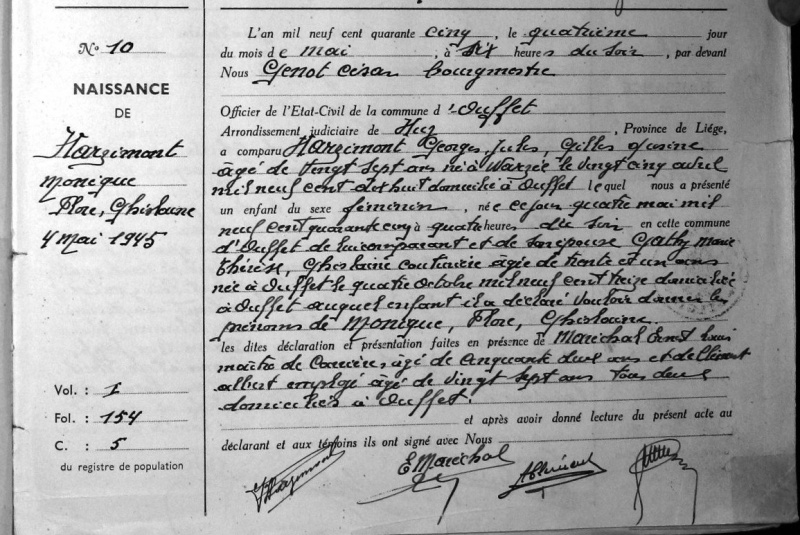 N° 10
NAISSANCE
DE
Harzimont
Monique
Flore, Ghislaine
4 Mai 1945
Vol. : I
Fol. : 154
C. : 5
du registre de population
L'an mil neuf cent quarante cinq, le quatrième jour
du mois de mai, à six heures du soir, par devant
Nous Genot César Bourgmestre
Officier de l'Etat-Civil de la commune d'Ouffet
Arrondissement judiciaire de Huy, Province de Liége,
a comparu Harzimont Georges, Jules, Gilles
âgé de vingt sept ans né à Warzée le vingt cinq avril
mil neuf cent dix huit domicilié à Ouffet lequel nous a présenté
un enfant du sexe féminin, née ce jour quatre mai mil
neuf cent quarante cinq à quatre heures du soir en cette commune
d'Ouffet de lui comparant et de son épouse Cathy Marie
Thérèse, Ghislaine couturière âgée de trente et un ans
née à Ouffet le quatre octobre mil neuf cent treize domiciliée
à Ouffet auquel enfant il a déclaré vouloir donner les
prénoms de Monique, Flore, Ghislaine.
les dites déclaration et présentation faites en présence de Maréchal Ernest Louis
maître de Carrières, âgé de cinquante deux ans et de Clément
Albert employé âgé de vingt sept ans tous deux
domiciliés à Ouffet.
et après avoir donné lecture du présent acte au
déclarant et aux témoins ils ont signé avec Nous
Harzimont E Maréchal A Clément